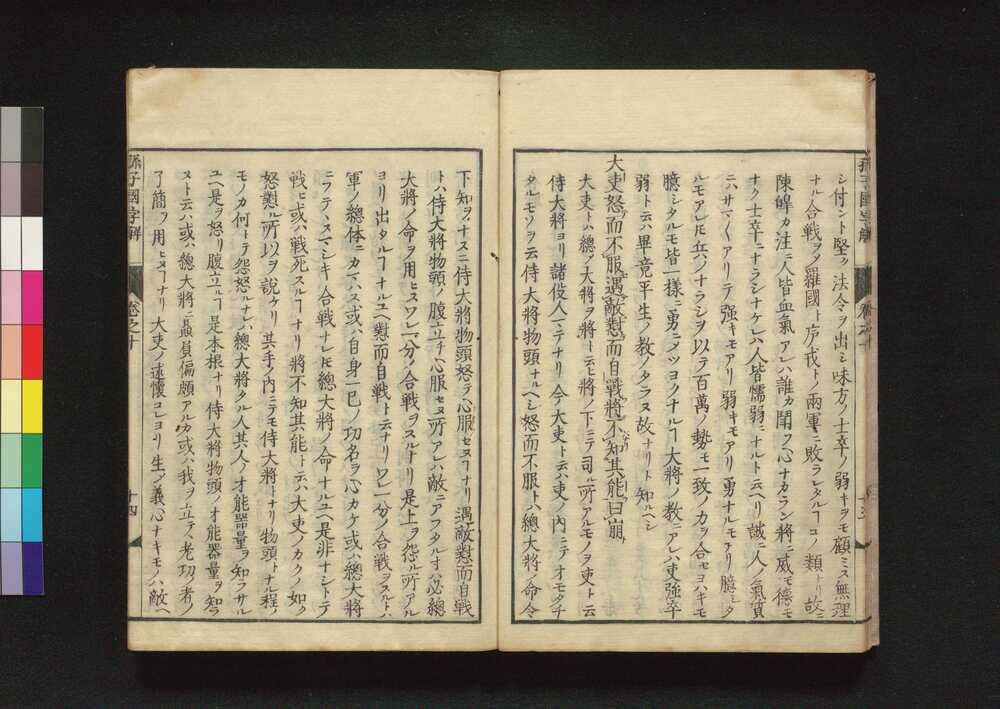 シ付ント堅ク法令ヲ出シ味方ノ士卒ノ弱キヲモ顧ミス無理
ナル合戦ヲノ羅國ト庐戎トノ兩軍ニ敗ラレタルヿコノ類トリ故ニ
陳皥カ注ニ人皆血氣アレハ誰カ聞フ心ナカラン將ニ威モ德モ
ナク士卒ニナラシナケレハ人皆懦弱ニナルト云ヘリ誠ニ人ノ氣質
ニハサマ〱アリテ强キモアリ弱キモアリ勇ナルモアリ臆シタ
ルモアレ𪜈兵ノナラシヲ以テ百萬ノ勢モ一致ノカヲ合セヨハキモ
臆シタルモ皆一様ニ勇ニツヨクナルヿ大將ノ教ニアレハ吏强卒
弱ト云ハ畢竟平生ノ教ノタラヌ故ナリト知ルヘシ
大吏怒而不服遇敵懟而自戰將不知其能曰崩
大吏トハ總ノ大將ヲ將ト云ヒ將ノ下ニテノ司ル所アルモノヲ吏ト云
侍大將ヨリ諸役人マテナリ今大吏ト云ハ吏ノ内ニテオモタチ
タルモノヲ云侍大將物頭ナルヘシ怒而不服トハ總大將ノ命令
下知ヲナスニ侍大將物頭怒テ心服セヌヿナリ遇敵懟而自戰
トハ侍大將物頭ノ腹立テ心服セヌ所アレハ敵ニアフタル寸必總
大將ノ命ヲ用ヒスワレ一分ノ合戦ヲスルナリ是上ヲ怨ル所アル
ヨリ出タルヿナルユヘ懟而自戦ト云ナリワレ一分ノ合戦ヲスルトハ
軍ノ總体ニカマハス或ハ自身一已ノ功名ヲ心カケ或ハ總大將
ニフテヽスマシキ合戦ナレ𪜈總大將ノ命ナルユヘ是非ナシトテ
戦ヒ或ハ戦死スルヿナリ將不知其能ト云ハ大吏ノカクノ如ク
怒懟ル所以ヲ説ケリ其手ノ内ニテモ侍大將トナリ物頭トナル程ノ
モノカ何トテ怨怒ルナレハ總大將タル人其人ノ才能器量ヲ知ラサル
ユヘ是ヲ怒リ腹立ルヿ是本根ナリ侍大將物頭ノ才能器量ヲ知ラ
ヌト云ハ或ハ總大將ニ贔負偏頗アルカ或ハ我ヲ立テ老功ノ者ノ
了簡ヲ用ヒヌヿナリ大吏ノ述懷コレヨリ生ノ義心ナキモノハ敵ヘ
孫子國字解
卷之十
十四